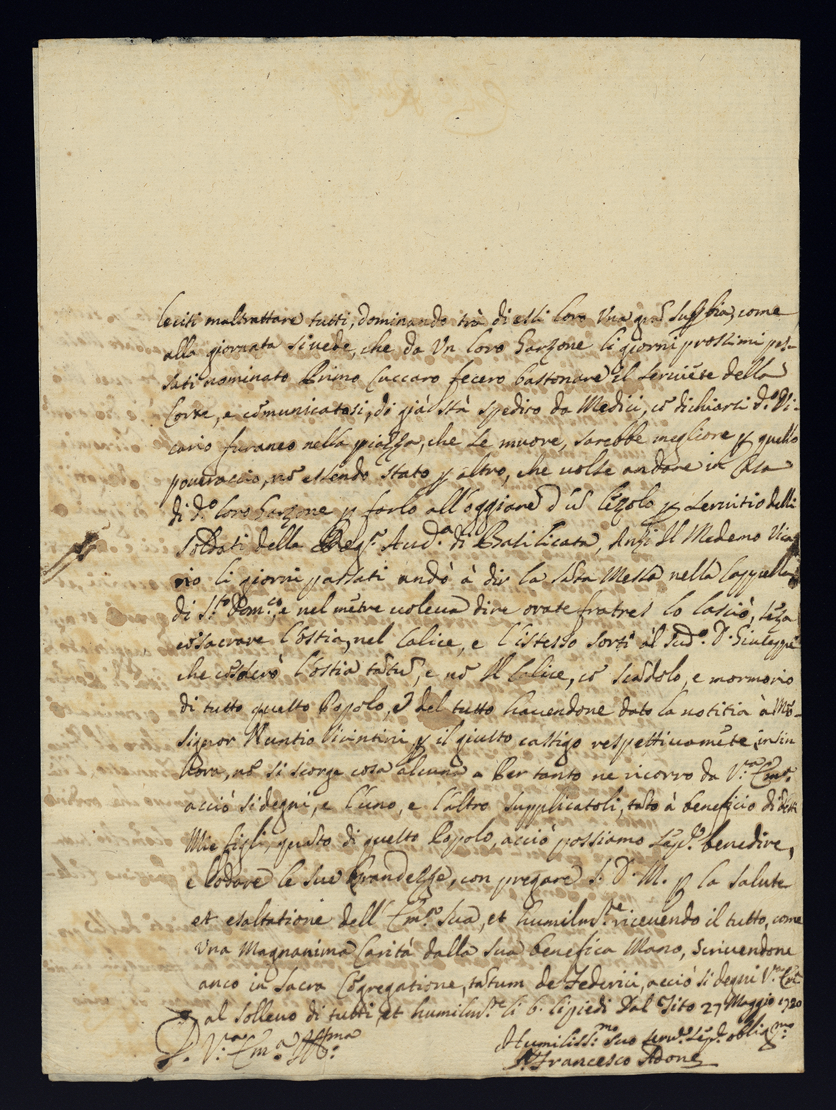 leciti maltrattare tutti, dominando trà di essi loro Una gra suꝑbia, come
alla giornata si vede, che da Un loro Garzone li giorni prossimi pas-
sati nominato Primo Cuccaro fecero bastonare il servie͂te della
Corte, e co͂municatosi, di già stà spedito da Medici, co͂ dichiarsi d.º Vi-
cario foraneo nella piazza, che se muore, sarebbe megliore ꝑ quello
poveraccio, no͂ essendo stato ꝑ altro, che volse andare in Casa
di d.º loro Garzone ꝑ farlo all'oggiare d'u͂ letzolo ꝑ servitio delli
soldati della Reg.ª Aud.ª di Basilicata, Anzi Il Medemo Vica
rio li giorni passati andò à dir la s͂ta Messa nella Cappella
di S.º Dom.co, e nel me͂tre voleva dire orate fratres lo lasciò, se͂za
co͂sacrare l'ostia, nel Calice, e l'istesso sortì al sud.º D. Giuseppe
che co͂sacrò l'ostia ta͂tu͂, e no͂ Il Calice, co͂ sca͂dolo, e mormorio
di tutto questo Popolo, e del tutto havendone dato la notitia à Mo͂-
signor Nuntio Vicintini ꝑ il giusto castigo respettivame͂te, in sin
hora, no͂ si scorge cosa alcuna Per tanto ne ricorro da V.ra Em.ª
acciò si degni, e l'uno, e l'altro supplicatoli, ta͂to à beneficio di detti
Miei figli, qua͂to di questo Popolo, acciò possiamo se͂p.e benedire,
e lodare le sue Grandezze, con pregare S. D. M. ꝑ la salute
et esaltatione dell'Em.ª sua, et humilm.te ricevendo il tutto, come
Una Magnanima Carità dalla sua benefica Mano, scrivendone
anco in Sacra Co͂gregatione, ta͂tum de Federici, acciò si degni V.ra Em.ª
al sollevo di tutti, et humilm.te li b. li piedi Dal Tito 27 Maggio 1720
D. V.ra Em.ª Ill.ma
Humiliss.mo suo serv.e se͂p.e oblig.mo
Francesco Adone